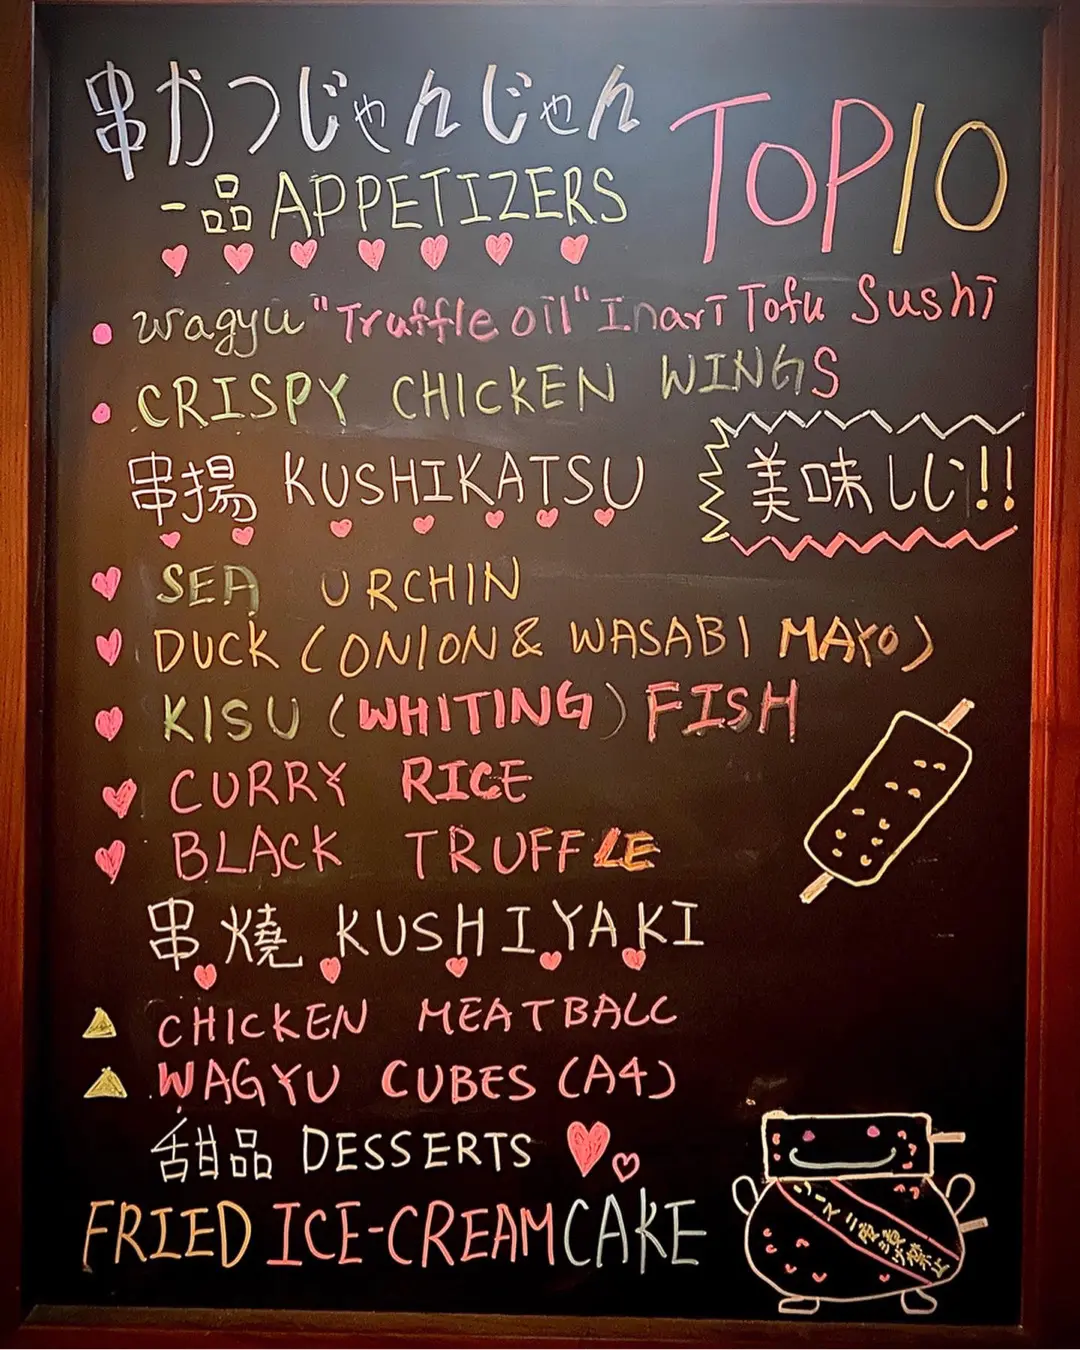 串かつじゃんじゃん TOP10
一品 APPETIZERS
wagyu "Truffle oil" Inari Tofu Sushi
CRISPY CHICKEN WINGS
串揚 KUSHIKATSU
美味しじ!!
SEA URCHIN
DUCK (ONION & WASABI MAYO)
KISU (WHITING) FISH
CURRY RICE
BLACK TRUFFLE
串燒 KUSHIYAKI
CHICKEN MEATBALL
WAGYU CUBES (A4)
甜品 DESSERTS
FRIED ICE-CREAM CAKE
ソース二度